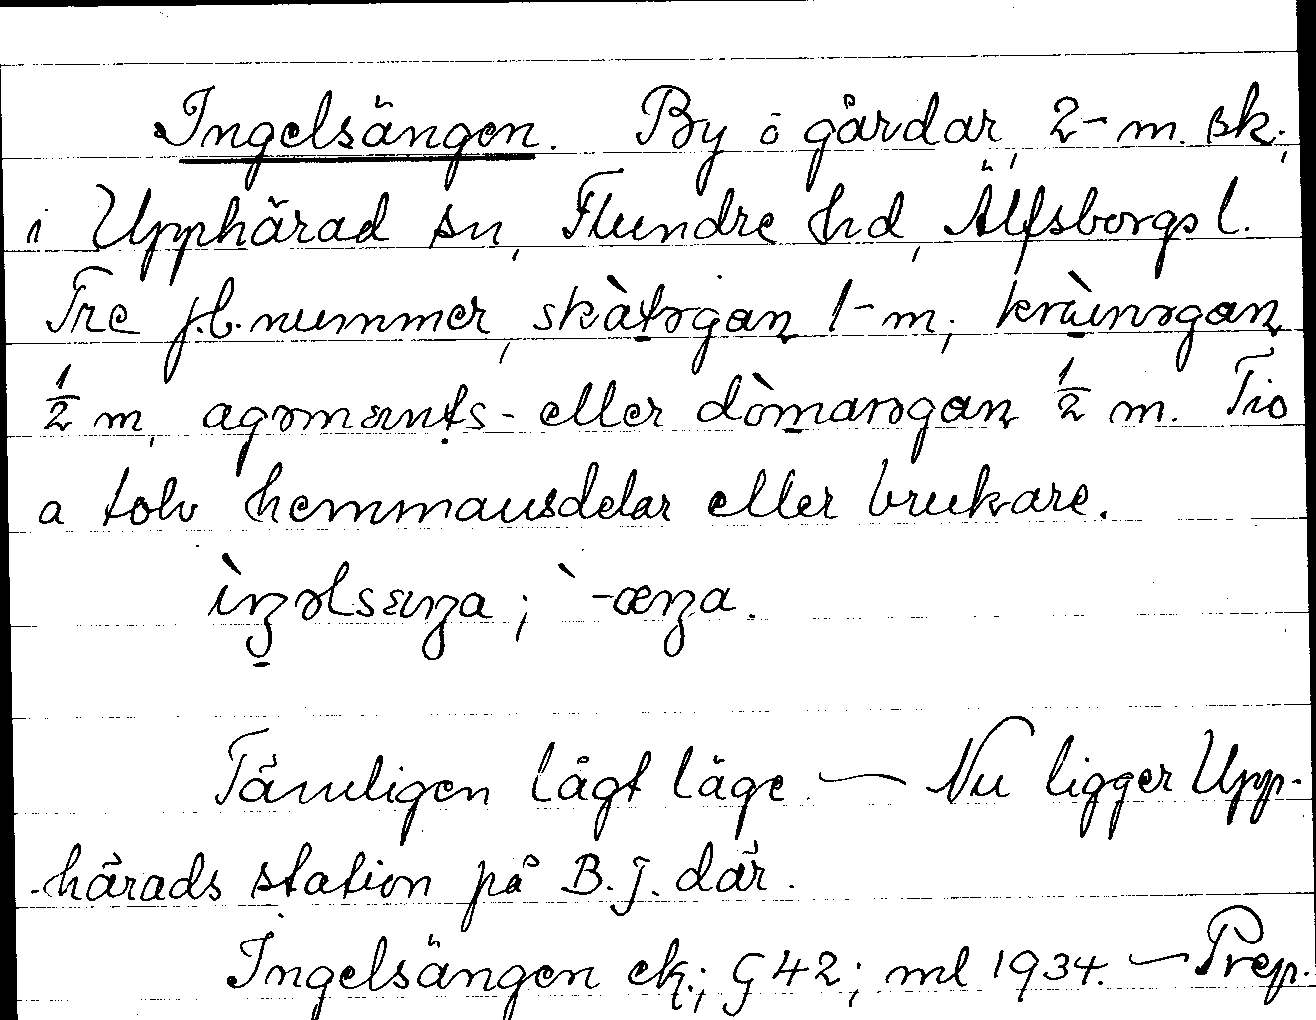 Ingelsängen. By o gårdar, 2-m. sk.;
i Upphärad sn, Flundre hd, Älfsborgs l.
Tre j.b.nummer, skàtəgaɳ 1-m; krùnəgaɳ
½ m, agəmɛnts- eller dòmarəgaɳ ½ m. Tio
a tolv hemmansdelar eller brukare.
ìŋəlsɛŋa; `-æŋa.
Tämligen lågt läge. — Nu ligger Upp-
-härads station på B.J. där.
Ingelsängen ek.; G 42; ml 1934. — Prep.